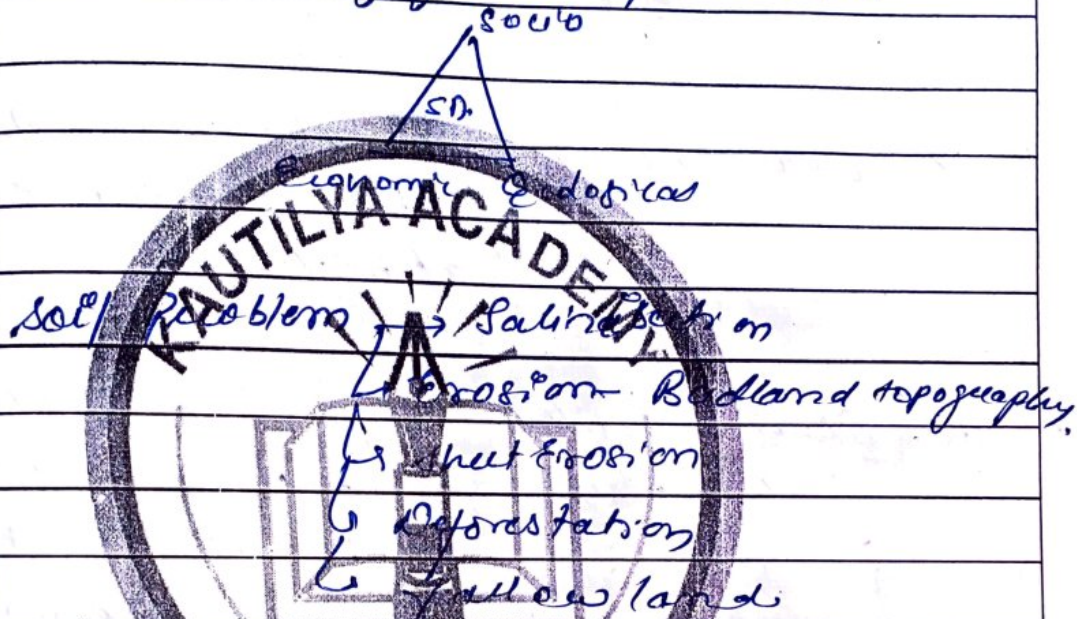 Socio
SD.
Economic Ecological
KAUTILYA ACADEMY
Soil Problem → Salinization
Erosion - Badland topography.
Sheet Erosion
Deforestation
Fallow land